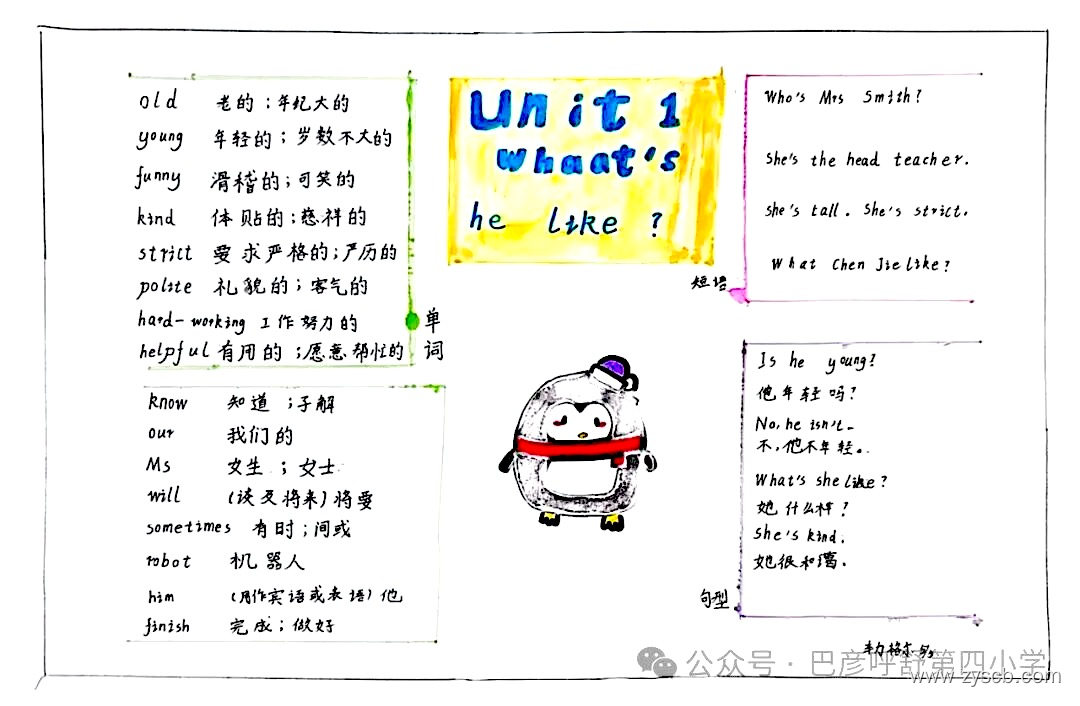 Unit 1
whaat's
he like ?
old 老的；年纪大的
young 年轻的；岁数不大的
funny 滑稽的；可笑的
kind 体贴的；慈祥的
strict 要求严格的；严历的
polite 礼貌的；客气的
hard-working 工作努力的
helpful 有用的；愿意帮忙的
单词
know 知道；了解
our 我们的
Ms 女生；女士
will （谈及将来）将要
sometimes 有时；间或
robot 机器人
him （用作宾语或表语）他
finish 完成；做好
Who's Mrs Smith?
She's the head teacher.
She's tall. She's strict.
What Chen Jie like?
短语
Is he young?
他年轻吗？
No, he isn't.
不，他不年轻。
What's she like?
她什么样？
She's kind.
她很和蔼.
句型
公众号 · 巴彦呼舒第四小学
www.zyscb.com